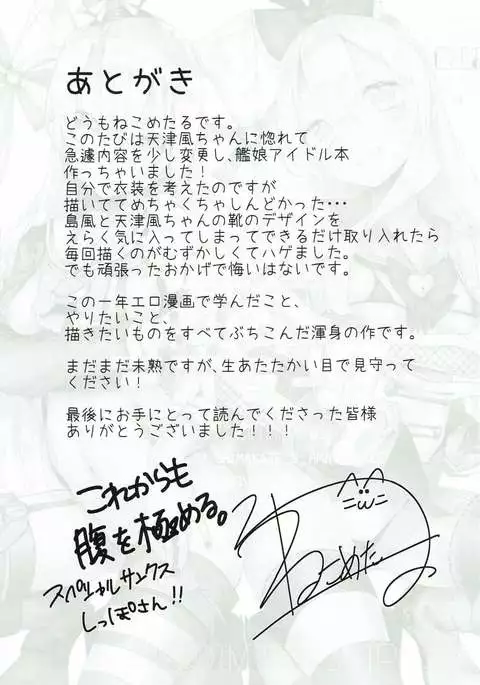 あとがき
どうもねこめたるです。
このたびは天津風ちゃんに惚れて
急遽内容を少し変更し、艦娘アイドル本
作っちゃいました！
自分で衣装を考えたのですが
描いててめちゃくちゃしんどかった・・・
島風と天津風ちゃんの靴のデザインを
えらく気に入ってしまってできるだけ取り入れたら
毎回描くのがむずかしくてハゲました。
でも頑張ったおかげで悔いはないです。
この一年エロ漫画で学んだこと、
やりたいこと、
描きたいものをすべてぶちこんだ渾身の作です。
まだまだ未熟ですが、生あたたかい目で見守って
ください！
最後にお手にとって読んでくださった皆様
ありがとうございました！！！
これからも
腹を極める。
スペシャルサンクス
しっぽさん!!
ねこめたる